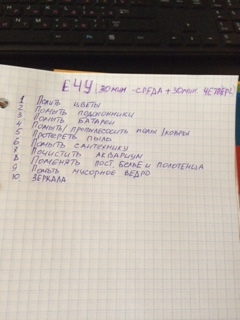 ЕЧУ 30 МИН - СРЕДА + 30 МИН ЧЕТВЕРГ
1 ПОЛИТЬ ЦВЕТЫ
2 ПОМЫТЬ ПОДОКОННИКИ
3 ПОМЫТЬ БАТАРЕИ
4 ПОМЫТЬ/ПРОПЫЛЕСОСИТЬ ПОЛЫ/КОВРЫ
5 ПРОТЕРЕТЬ ПЫЛЬ
6 ПОМЫТЬ САНТЕХНИКУ
7 ПОЧИСТИТЬ АКВАРИУМ
8 ПОМЕНЯТЬ ПОСТ. БЕЛЬЕ И ПОЛОТЕНЦА
9 ПОМЫТЬ МУСОРНОЕ ВЕДРО
10 ЗЕРКАЛА